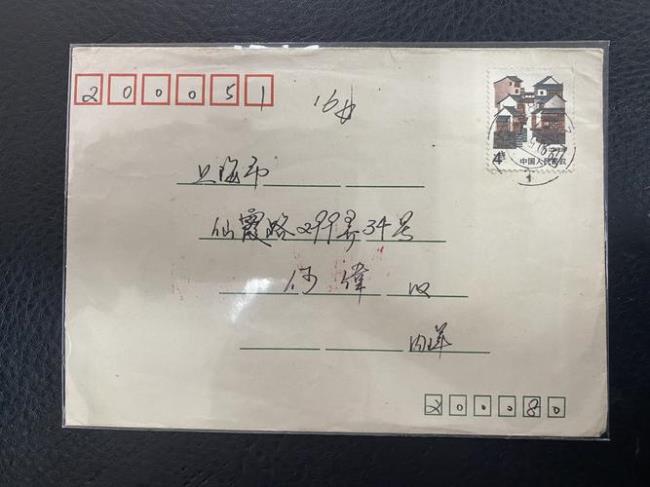 200051
上海市
仙霞路299弄34号
何偉 收
内详
200080
4
中国人民邮政